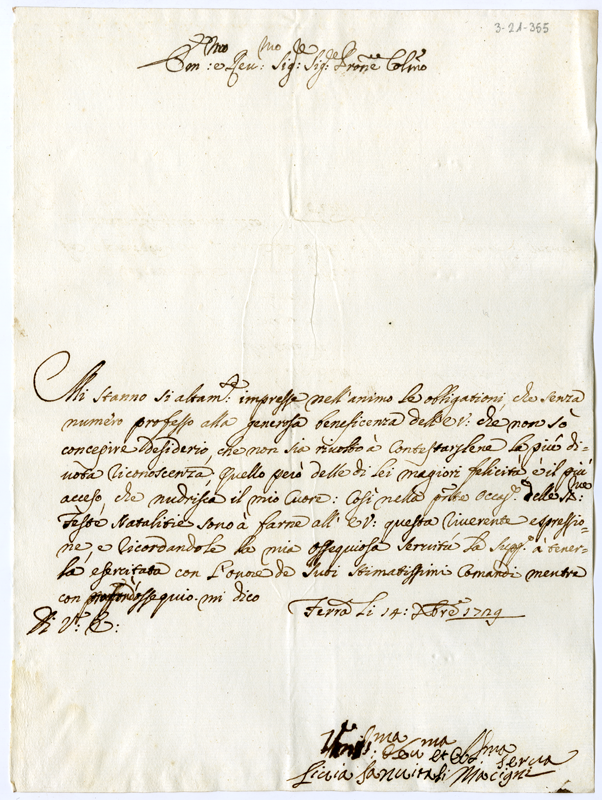 3-21-365
Em:mo e Rev:mo Sig:re Sig:re Prone Colmo
Mi stanno si altam:te impresse nell'animo le obligationi che senza
numero professo alla generosa beneficenza dell'E.V: che non sò
concepire desiderio, che non sia rivolto à contestarglene la più di=
vota riconoscenza, quello però delle di lei magiori felicità e il più
acceso, che nudrisca il mio Cuore: Così nella pnte occas:e delle SS:me
Feste Natalitie sono à farne all'E.V: questa riverente espressio=
ne, e ricordandole la mia ossequiosa servitù la supp:o à tener=
la esercitata con l'onore de suoi stimatissimi Comandi mentre
con ossequio mi dico
Di V:E:
Ferra li 14: Xbre 1729
Um:ma Dev:ma et Obl:ma Serva
Livia Sanvitali Macigni